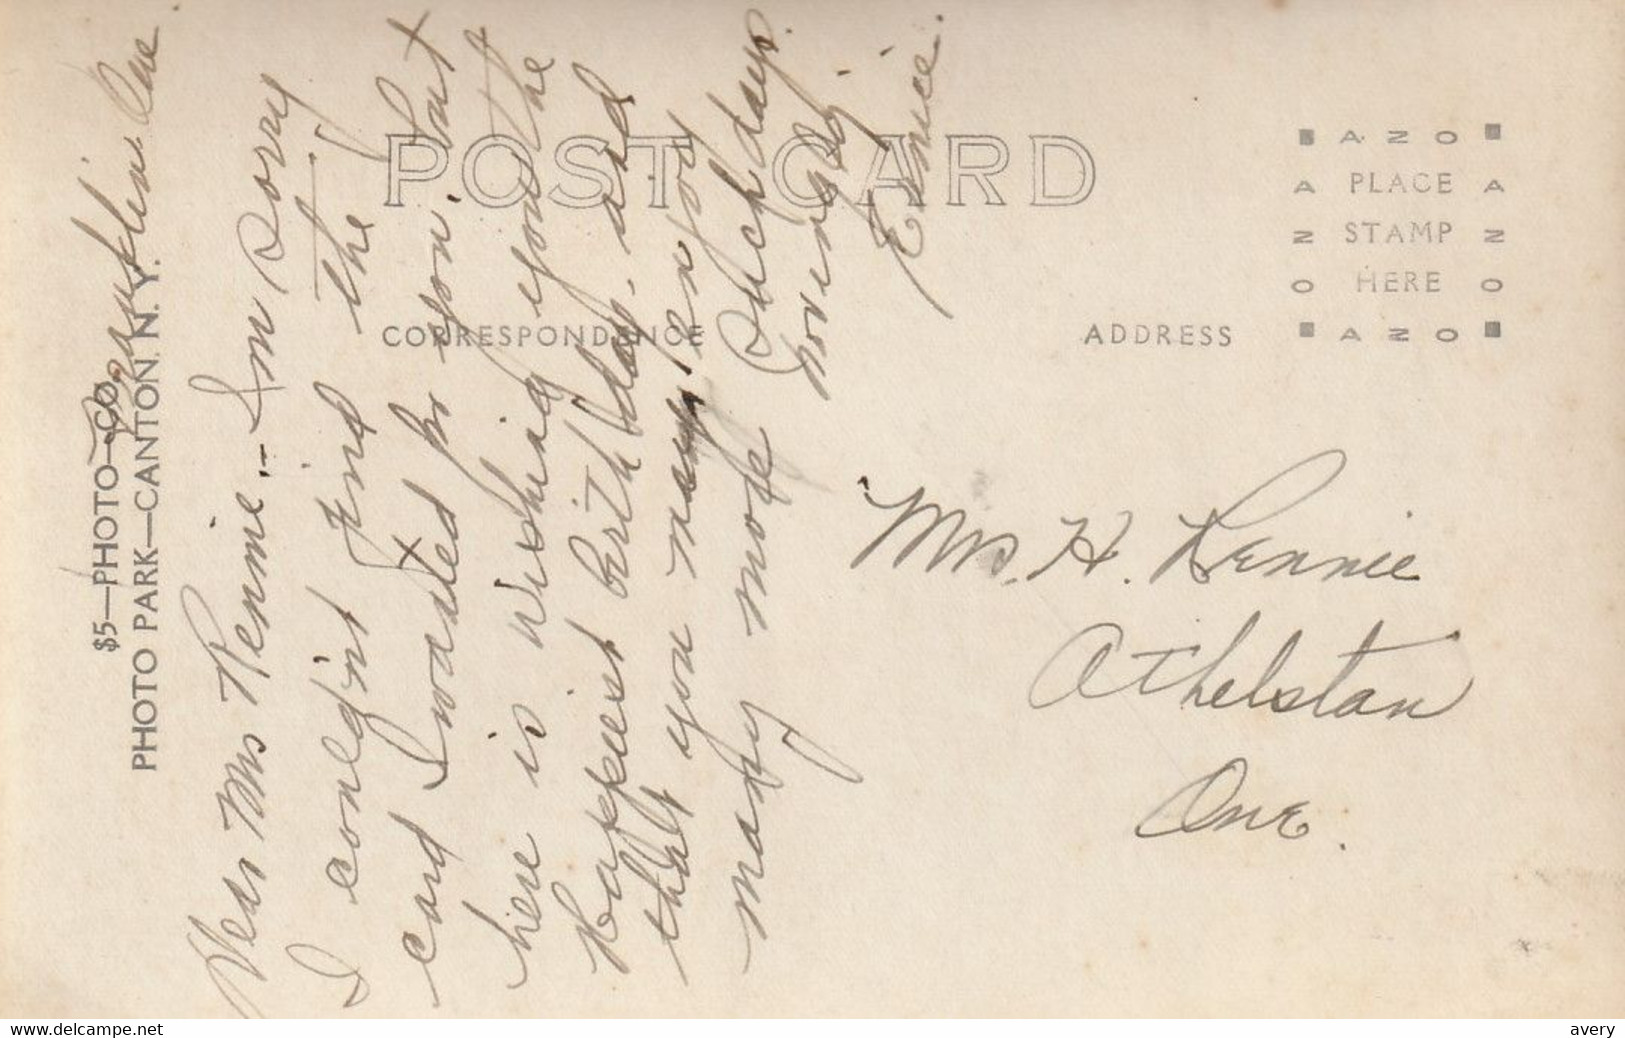 $5—PHOTO CO.
PHOTO PARK—CANTON. N. Y.
Franklin. Que.
Dear Mrs Rennie.- I'm sorry
I could'nt find the
card I wanted for you. but
here is wishing you the
Happiest birthday. and
that you may enjoy
many more such days.
Lovingly
Eunice.
POST CARD
CORRESPONDENCE
ADDRESS
AZO
PLACE
STAMP
HERE
AZO
AZO
AZO
Mrs. H. Rennie
Athelstan
Que.
www.delcampe.net
avery